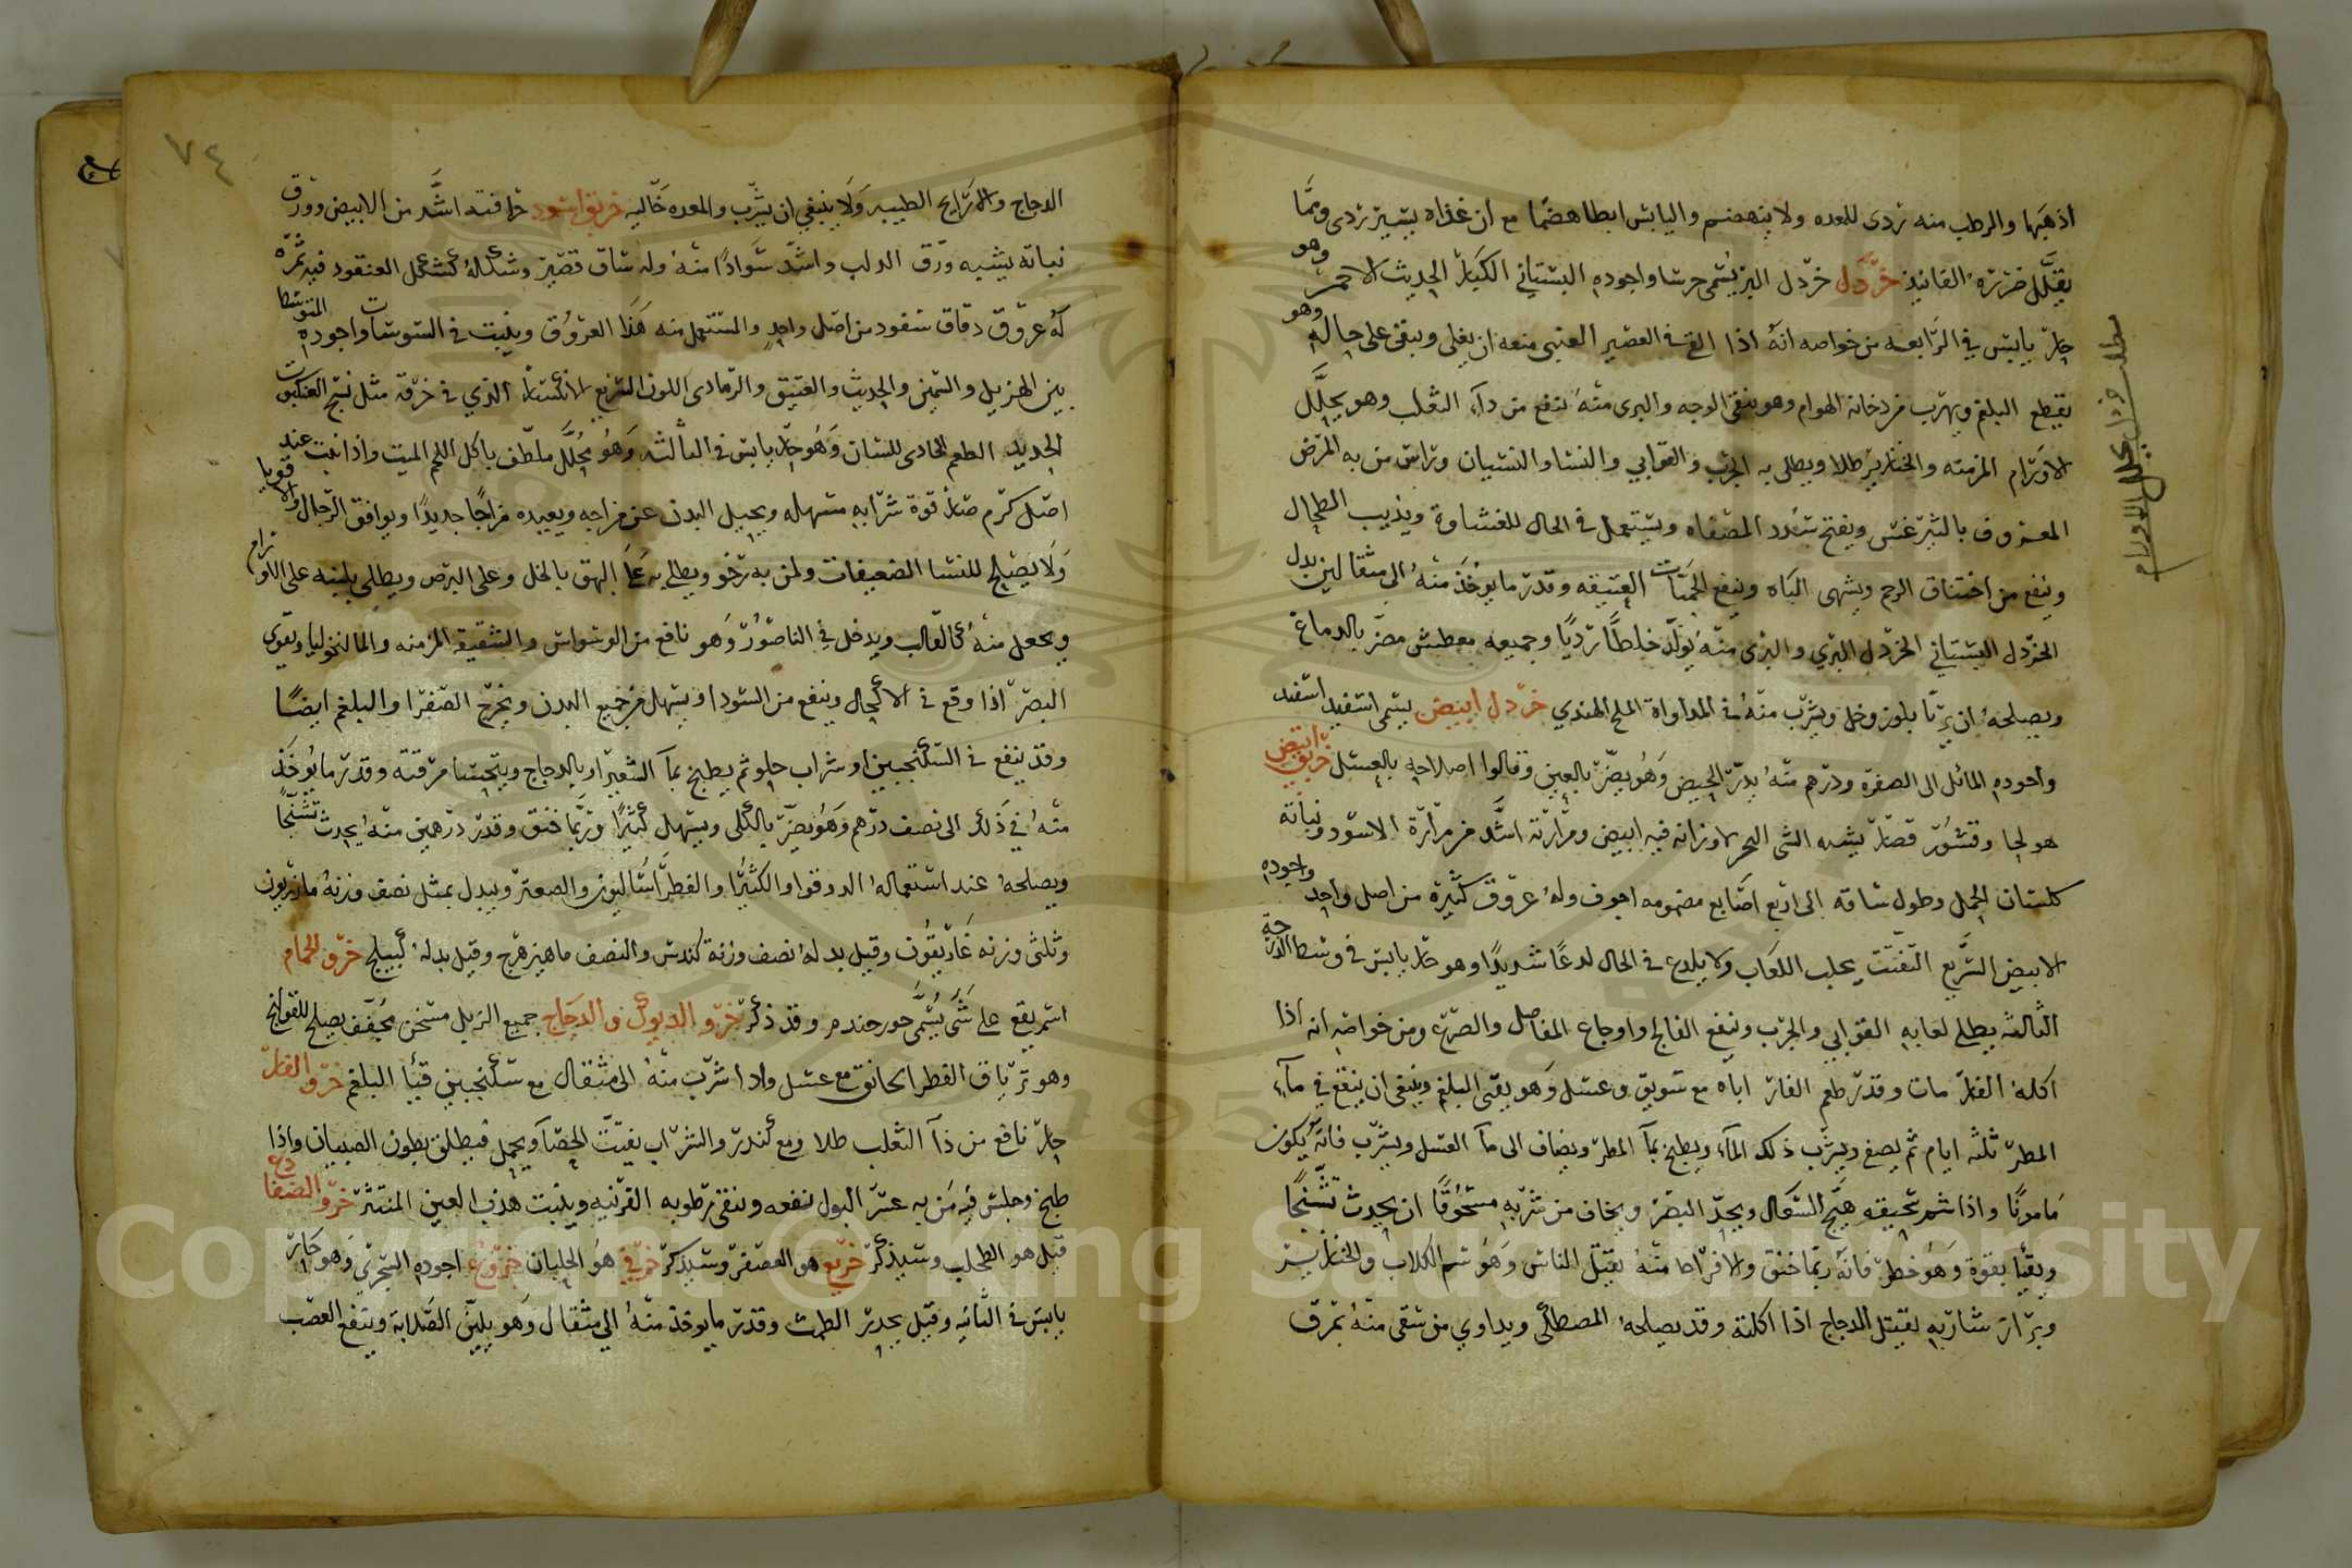 اذهبها والرطب منه ردى للمعده ولا ينهضم واليابس ابطا هضما مع ان غذاه يسير ردى ومما
يقلل ضرره الفانيذ خردل خردل البر يسمى حرشا واجوده البستاني الكبار الحديث الاحمر وهو
حار يابس في الرابعه من خواصه انه اذا القي في العصير العنبى منعه ان يغلى ويبقى على حاله وهو
يقطع البلغم ويهرب من دخانه الهوام وهو ينقى الوجه والبرى منه ينفع من دآء الثعلب وهو يحلل
الاورام المزمنه والخنازير طلا ويطلى به الجرب والقوابي والنسا والنسيان وراس من به المرض
المعروف بالثيرغس ويفتح سدد المصفاه ويستعمل في الحال للغشاوة ويذيب الطحال
وينفع من اختناق الرحم ويشهى الباه وينفع الحميات العتيقه وقدر ما يوخذ منه الى مثقالين بدل
الخردل البستاني الخردل البري والبرى منه يولد خلطا رديا وجميعه معطش مضر بالدماغ
ويصلحه ان يربا بلوز وخل ويشرب منه في المداواة الملح الهندي خردل ابيض يسمى اسفيد اسفند
واجوده المائل الى الصفره ودرهم منه يدر الحيض وهو يضر بالعين وقالوا اصلاحه بالعسل خربق ابيض
هو لحا وقشور قصار يشبه الشى اوزانه فيه ابيض ومرارته اشد من مرارة الاسود ونباته
كلسان الحمل وطول ساقه الى اربع اصابع مضمومه اجوف وله عروق كثيرة من اصل واحد واجوده
الابيض السريع التفتت يجلب اللعاب ولا يلدع في الحال لدعا شديدا وهو حار يابس في وسط الدرجة
الثالثه يطلى لعابه القوابي والجرب وينفع الفالج واوجاع المفاصل والصرع ومن خواصه انه اذا
اكله الفار مات وقدر طعم الفار اباه مع سويق وعسل وهو يقى البلغم وينبغى ان ينقع في مآء
المطر ثلثه ايام ثم يصفى ويشرب ذلك المآء ويطبخ بمآ المطر ويضاف الى مآ العسل ويشرب فانه يكون
مامونا واذا شم سحيقه هيج السعال ويحد البصر ويخاف من شربه مسحوقا ان يحدث تشنجا
ويقيا بقوة وهو خطر فانه ربما خنق والافراط منه يقتل الناس وهو سم الكلاب والخنازير
وبراز شاربه يقتل الدجاج اذا اكلته وقد يصلحه المصطكى ويداوي من سقى منه بمرق
مطلب خردل يحلل الاورام
٧٤
الدجاج والروايح الطيبه ولا ينبغي ان يشرب والمعده خاليه خربق اسود حرافته اشد من الابيض وورق
نباته يشبه ورق الدلب واشد سوادا منه وله ساق قصير وشكله كشكل العنقود فيه ثمره
له عروق دقاق سود من اصل واحد والمستعمل منه هذا العروق وينبت في السوسات واجوده المتوسط
بين الهزيل والسمين والحديث والعتيق والرمادى اللون السريع الانكسار الذي في خرقه مثل نسج العنكبوت
الحديد الطعم الحادى للسان وهو حار يابس في الثالثه وهو محلل ملطف ياكل اللحم الميت واذا نبت عند
اصل كرم صار قوة شرابه مسهله ويحيل البدن عن مزاجه ويعيده مزاجا جديدا ويوافق الرجال والاقويا
ولا يصلح للنسا الضعيفات ولمن به رخو ويطلى به على البهق بالخل وعلى البرص ويطلى بلبنه على الاورام
ويجعل منه كالقالب ويدخل في الناصور وهو نافع من الوسواس والشقيقه المزمنه والمالنخوليا ويقوي
البصر اذا وقع في الاكحال وينفع من السودا ويسهل من جميع البدن ويخرج الصفرا والبلغم ايضا
وقد ينفع في السكنجبين او شراب حلو ثم يطبخ بمآ الشعير او بالدجاج ويتحسا مرقته وقدر ما يوخذ
منه في ذلك الى نصف درهم وهو يضر بالكلى ويسهل كثيرا وربما خنق وقدر درهمين منه يحدث تشنجا
ويصلحه عند استعماله الدوقوا والكثيرا والفطراساليون والصعتر ويبدل بمثل نصف وزنه مازريون
وثلثى وزنه غاريقون وقيل بدله نصف وزنه كندس والنصف ماهيزهرج وقيل بدله كبيلج خرو الحمام
اسم يقع على شى يسمى جورجندم وقد ذكر خرو الديوك والدجاج جميع الزبل مسخن مجفف يصلح للقولنج
وهو ترياق الفطر الخانق مع عسل واذا شرب منه الى مثقال مع سكنجبين قيا البلغم خرو الفار
حار نافع من دآ الثعلب طلا ومع كندر والشراب يفتت الحصا ويحمل فيطلق بطون الصبيان واذا
طبخ وجلس فيه من به عسر البول نفعه وينقى رطوبه القرنيه وينبت هدب العين المنتثر خرو الضفادع
قيل هو الطحلب وسيذكر خريع هو العصفر وسيذكر خرفي هو الجلبان خروع اجوده البحرى وهو حار
يابس في الثانيه وقيل يحدر الطمث وقدر ما يوخذ منه الى مثقال وهو يلين الصلابة وينفع العصب
Copyright © King Saud University